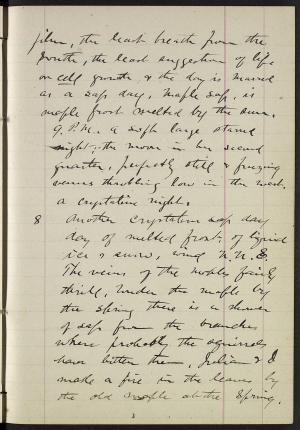 film, the least breath from the
South, the least suggestion of life
or cell growth & the day is marred
as a sap day, maple sap, is
maple frost melted by the sun.
9. P.M. a soft large starred
night; the moon in her second
quarter, perfectly still & freezing
venus throbbing low in the west.
a crystalline night.
8 Another crystalline sap day
day of melted frost, of liquid
ice & snow, wind N.N.E.
The veins of the maples fairly
thrill, Under the maple by
the spring there is a shower
of sap from the branches
where probably the squirrels
have bitten them, Julian & I
make a fire in the leaves by
the old maple at the Spring,